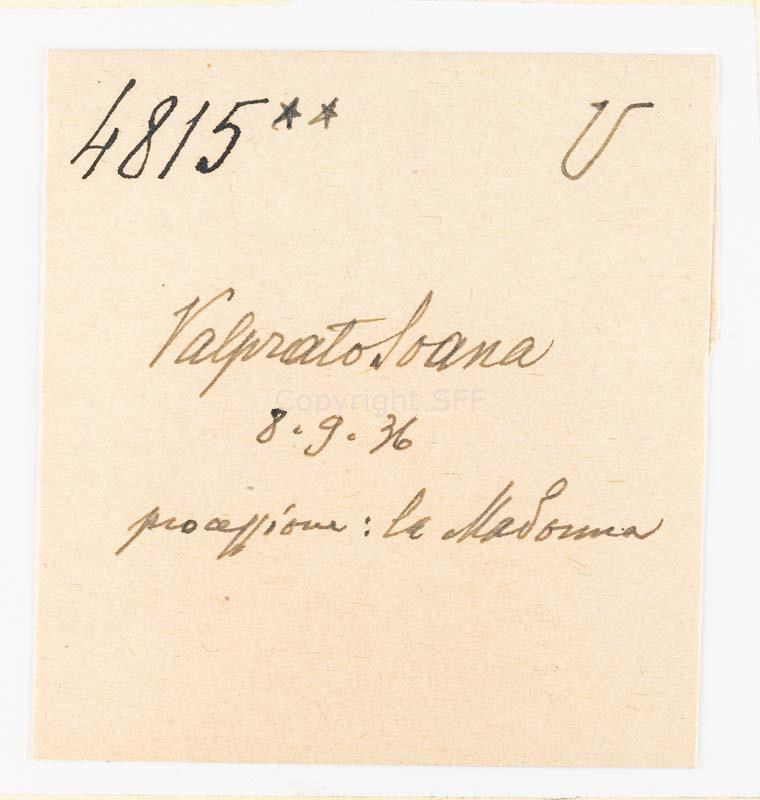 4815** V
Valprato Soana
Copyright SFF
8.9.36
processione: la Madonna